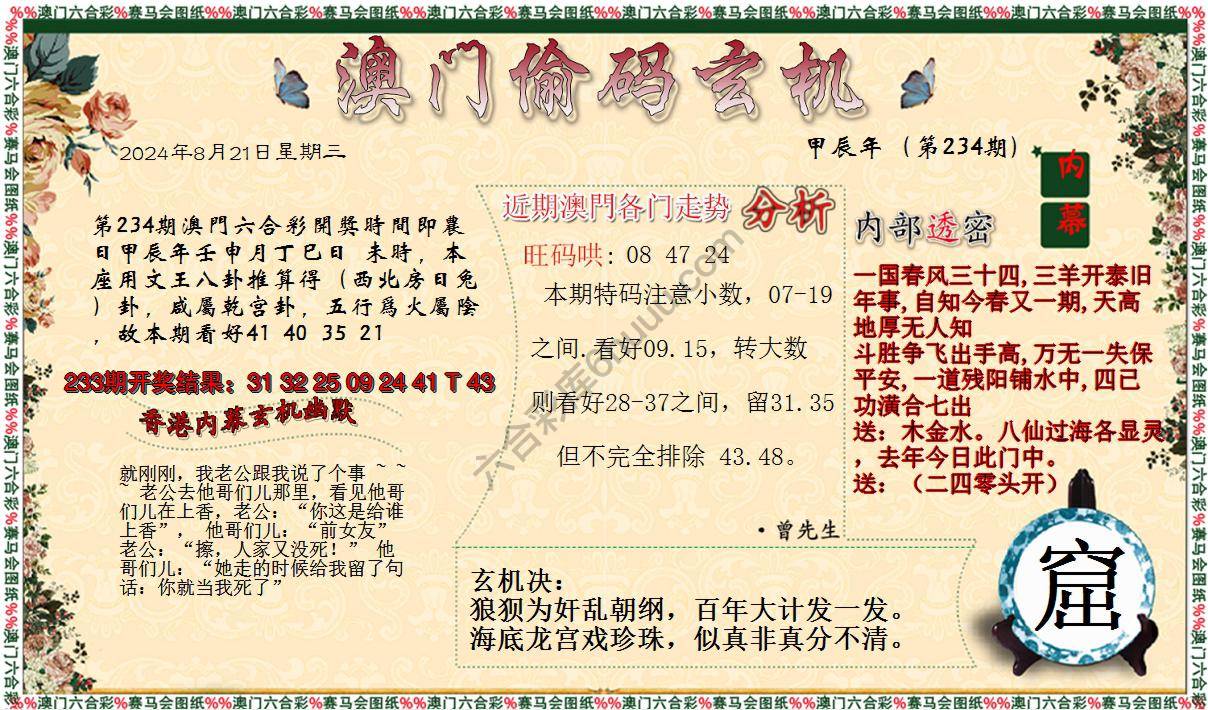 %%澳门六合彩%赛马会图纸%%澳门六合彩%赛马会图纸%%澳门六合彩%赛马会图纸%%澳门六合彩%赛马会图纸%%澳门六合彩%赛马会图纸%%澳门六合彩%赛马会图纸%%
澳门偷码玄机
2024年8月21日星期三
甲辰年（第234期）
内
幕
第234期澳門六合彩開獎時間即農
日甲辰年壬申月丁巳日 未時，本
座用文王八卦推算得（西北房日兔
）卦，咸屬乾宫卦，五行爲火屬陰
，故本期看好41 40 35 21
233期开奖结果：31 32 25 09 24 41 T 43
香港内幕玄机幽默
就刚刚，我老公跟我说了个事 ~ ~
~ 老公去他哥们儿那里，看见他哥
们儿在上香，老公：“你这是给谁
上香”， 他哥们儿：“前女友”
老公：“擦，人家又没死！” 他
哥们儿：“她走的时候给我留了句
话：你就当我死了”
近期澳門各门走势 分析
旺码哄: 08 47 24
本期特码注意小数，07-19
之间.看好09.15，转大数
则看好28-37之间，留31.35
但不完全排除 43.48。
·曾先生
内部透密
一国春风三十四,三羊开泰旧
年事,自知今春又一期,天高
地厚无人知
斗胜争飞出手高,万无一失保
平安,一道残阳铺水中,四已
功潢合七出
送：木金水。八仙过海各显灵
，去年今日此门中。
送：（二四零头开）
玄机决：
狼狈为奸乱朝纲，百年大计发一发。
海底龙宫戏珍珠，似真非真分不清。
窟
%%澳门六合彩%赛马会图纸%%澳门六合彩%赛马会图纸%%澳门六合彩%赛马会图纸%%澳门六合彩%赛马会图纸%%澳门六合彩%赛马会图纸%%澳门六合彩%赛马会图纸%%